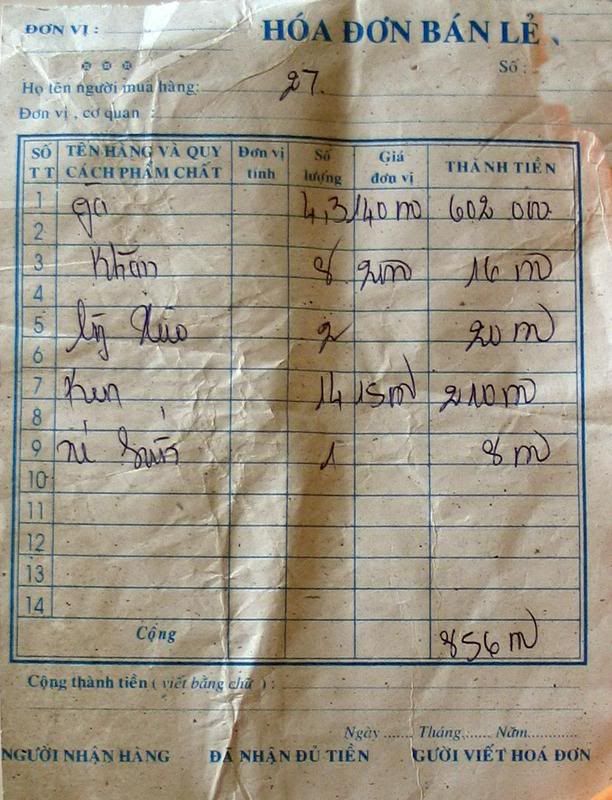 ĐƠN VỊ :
HÓA ĐƠN BÁN LẺ
Số :
Họ tên người mua hàng: 27.
Đơn vị , cơ quan :
SỐ TT TÊN HÀNG VÀ QUY CÁCH PHẨM CHẤT Đơn vị tính Số lượng Giá đơn vị THÀNH TIỀN
1 gà 4,3 140 m 602 000
2
3 Khăn 8 2m 16 m
4
5 2 20 m
6
7 Ken 14 15m 210m
8
9 1 8 m
10
11
12
13
14
Cộng 856 m
Cộng thành tiền ( viết bằng chữ ) :
Ngày ...... Tháng...... Năm...........
NGƯỜI NHẬN HÀNG ĐÃ NHẬN ĐỦ TIỀN GƯỜI VIẾT HOÁ ĐƠN